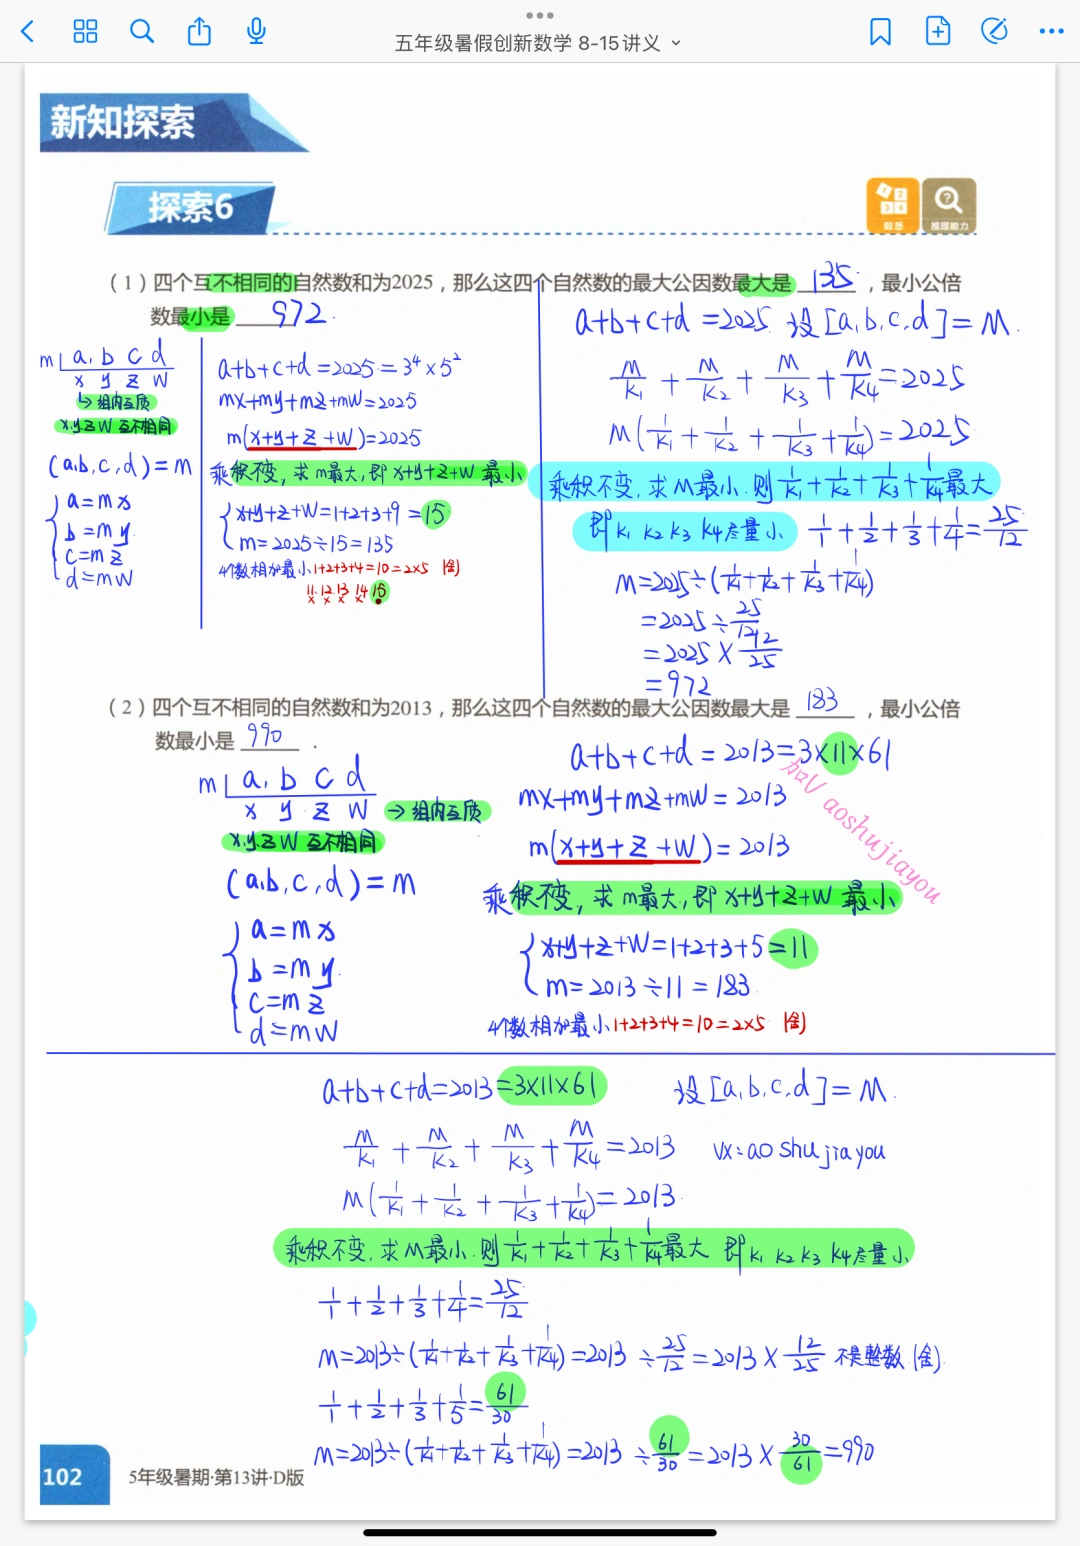 五年级暑假创新数学 8-15讲义
新知探索
探索6
数感
推理能力
（1）四个互不相同的自然数和为2025，那么这四个自然数的最大公因数最大是 135 ，最小公倍
数最小是 972 .
m a, b c d
x y z w
↳ 组内互质
x.y.z w 互不相同
(a,b,c,d)=m
a=mx
b=my
c=mz
d=mw
a+b+c+d=2025=3⁴×5²
mx+my+mz+mw=2025
m(x+y+z+w)=2025
乘积不变, 求m最大, 即 x+y+z+w 最小
x+y+z+w=1+2+3+9=15
m=2025÷15=135
4个数相加最小 1+2+3+4=10=2×5 (舍)
11 12 13 14 15
x x x x
a+b+c+d=2025 设[a,b,c,d]=M.
M/k₁ + M/k₂ + M/k₃ + M/k₄ = 2025
M(1/k₁ + 1/k₂ + 1/k₃ + 1/k₄) = 2025
乘积不变, 求M最小. 则 1/k₁+1/k₂+1/k₃+1/k₄最大
即 k₁ k₂ k₃ k₄尽量小
1/1+1/2+1/3+1/4=25/12
M=2025÷(1/k₁+1/k₂+1/k₃+1/k₄)
=2025÷25/12
=2025×12/25
=972
（2）四个互不相同的自然数和为2013，那么这四个自然数的最大公因数最大是 183 ，最小公倍
数最小是 990 .
m a, b c d
x y z w → 组内互质
x.y.z w 互不相同
(a,b,c,d)=m
a=mx
b=my.
c=mz
d=mw
a+b+c+d=2013=3×11×61
mx+my+mz+mw=2013
m(x+y+z+w)=2013
加V aoshujiayou
乘积不变, 求m最大, 即 x+y+z+w 最小
x+y+z+w=1+2+3+5=11
m=2013÷11=183
4个数相加最小 1+2+3+4=10=2×5 (舍)
a+b+c+d=2013=3×11×61 设[a,b,c,d]=M.
M/k₁ + M/k₂ + M/k₃ + M/k₄ = 2013 vx:aoshujiayou
M(1/k₁ + 1/k₂ + 1/k₃ + 1/k₄) = 2013
乘积不变, 求M最小. 则 1/k₁+1/k₂+1/k₃+1/k₄最大 即k₁ k₂ k₃ k₄尽量小
1/1+1/2+1/3+1/4=25/12
M=2013÷(1/k₁+1/k₂+1/k₃+1/k₄)=2013÷25/12=2013×12/25 不是整数.(舍).
1/1+1/2+1/3+1/5=61/30
M=2013÷(1/k₁+1/k₂+1/k₃+1/k₄)=2013÷61/30=2013×30/61=990
102
5年级暑期·第13讲·D版